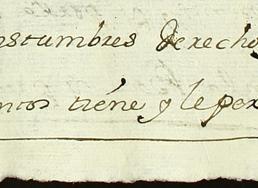 ostumbres derecho
ntos tiene y le per